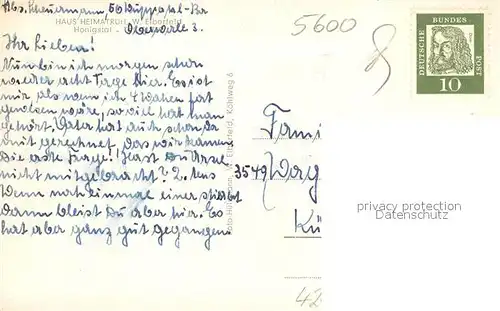 Abs. Scheuermann, 56 Wuppertal-Ba
HAUS HEIMATRUH, W. Elberfeld
Honigstal - Obergarle 3.
Ihr Lieben!
Nun bin ich morgen schon
wieder acht Tage hier. Es ist
mir als wenn ich 4 Wochen fort
gewesen wäre, so viel hat man
gehört. Vater hat auch schon da
mit gerechnet, das wir kamen.
Die erste Frage! Hast Du Ursel
nicht mitgebracht? 2.tens
Wenn noch einmal einer stirbt
dann bleist Du aber hier. Es
hat aber ganz gut gegangen.
Elberfeld, Kohlweg 6
5600
DEUTSCHE BUNDES POST
10
Fami
3549 Wag
Kü
42
privacy protection
Datenschutz